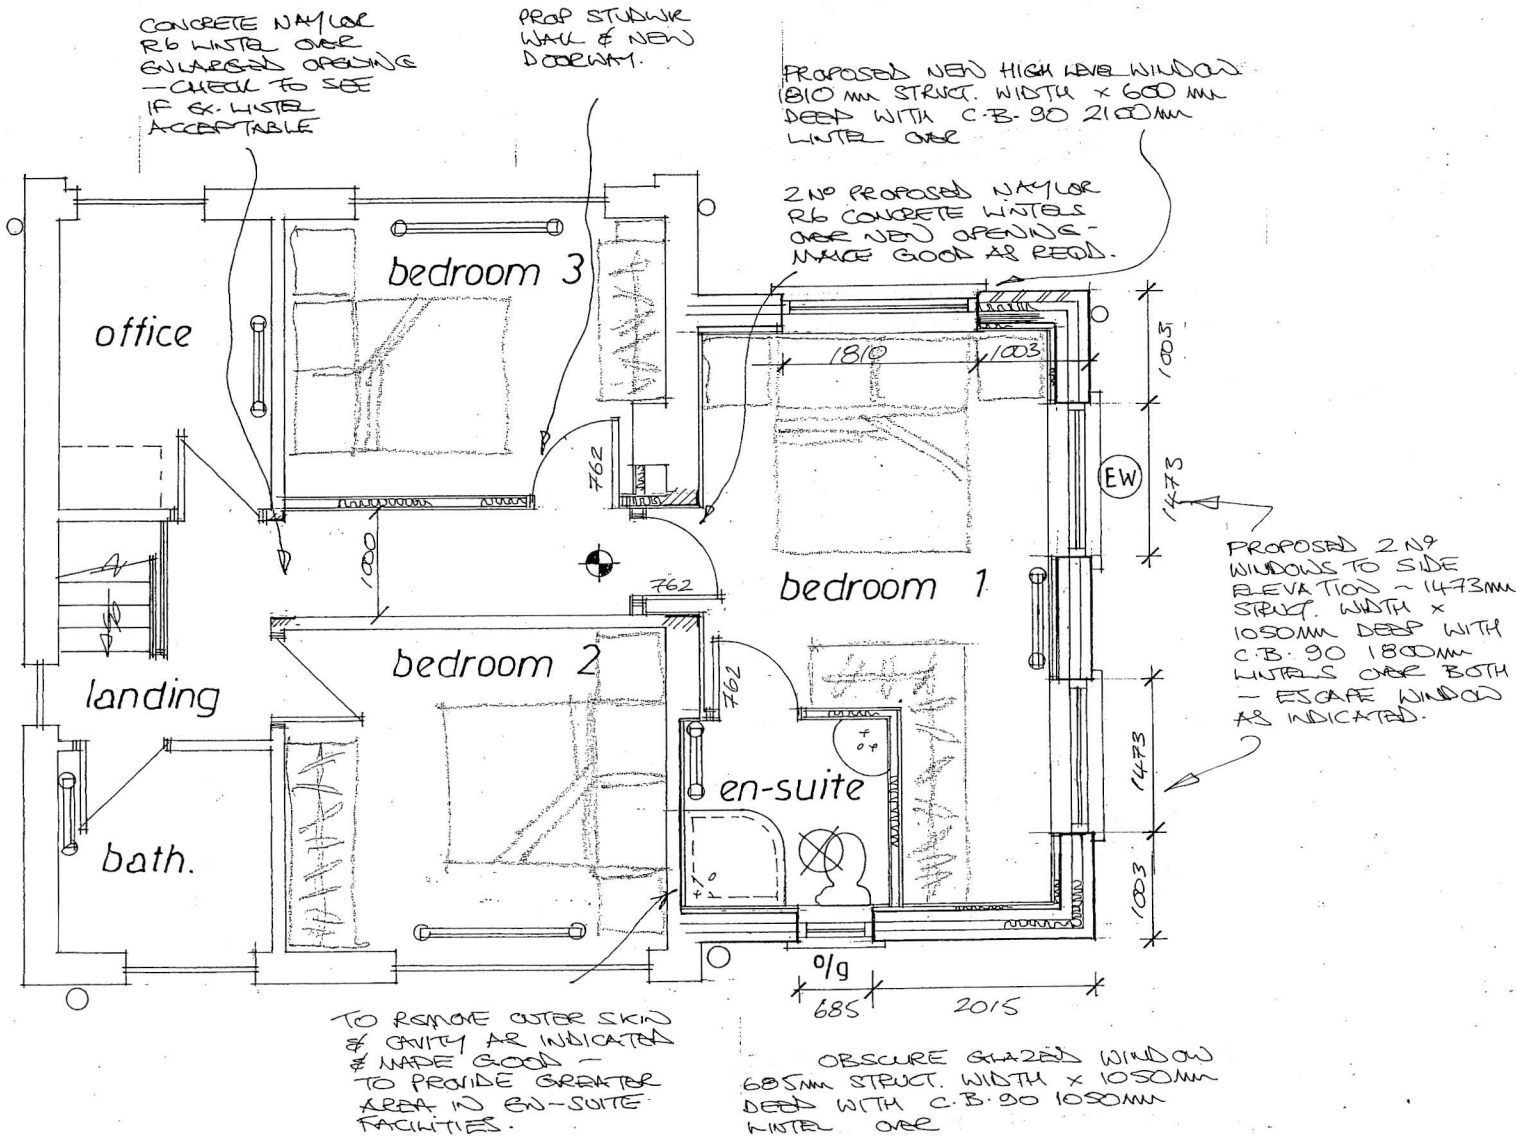 CONCRETE NAYLOR
R6 LINTEL OVER
ENLARGED OPENING
- CHECK TO SEE
IF EX. LINTEL
ACCEPTABLE
PROP STUDWK
WALL & NEW
DOORWAY.
PROPOSED NEW HIGH LEVEL WINDOW
1810 mm STRUCT. WIDTH x 600 mm
DEEP WITH C.B. 90 2100mm
LINTEL OVER
2 No PROPOSED NAYLOR
R6 CONCRETE LINTELS
OVER NEW OPENING -
MAKE GOOD AS REQD.
bedroom 3
office
1810
1003
1003
762
EW
1473
1000
762
bedroom 1
PROPOSED 2 No
WINDOWS TO SIDE
ELEVATION - 1473mm
STRUCT. WIDTH x
1050mm DEEP WITH
C.B. 90 1800mm
LINTELS OVER BOTH
- ESCAPE WINDOW
AS INDICATED.
bedroom 2
landing
762
1473
en-suite
bath.
1003
o/g
685
2015
TO REMOVE OUTER SKIN
& CAVITY AS INDICATED
& MADE GOOD -
TO PROVIDE GREATER
AREA IN EN-SUITE
FACILITIES.
OBSCURE GLAZED WINDOW
685mm STRUCT. WIDTH x 1050mm
DEEP WITH C.B. 90 1050mm
LINTEL OVER